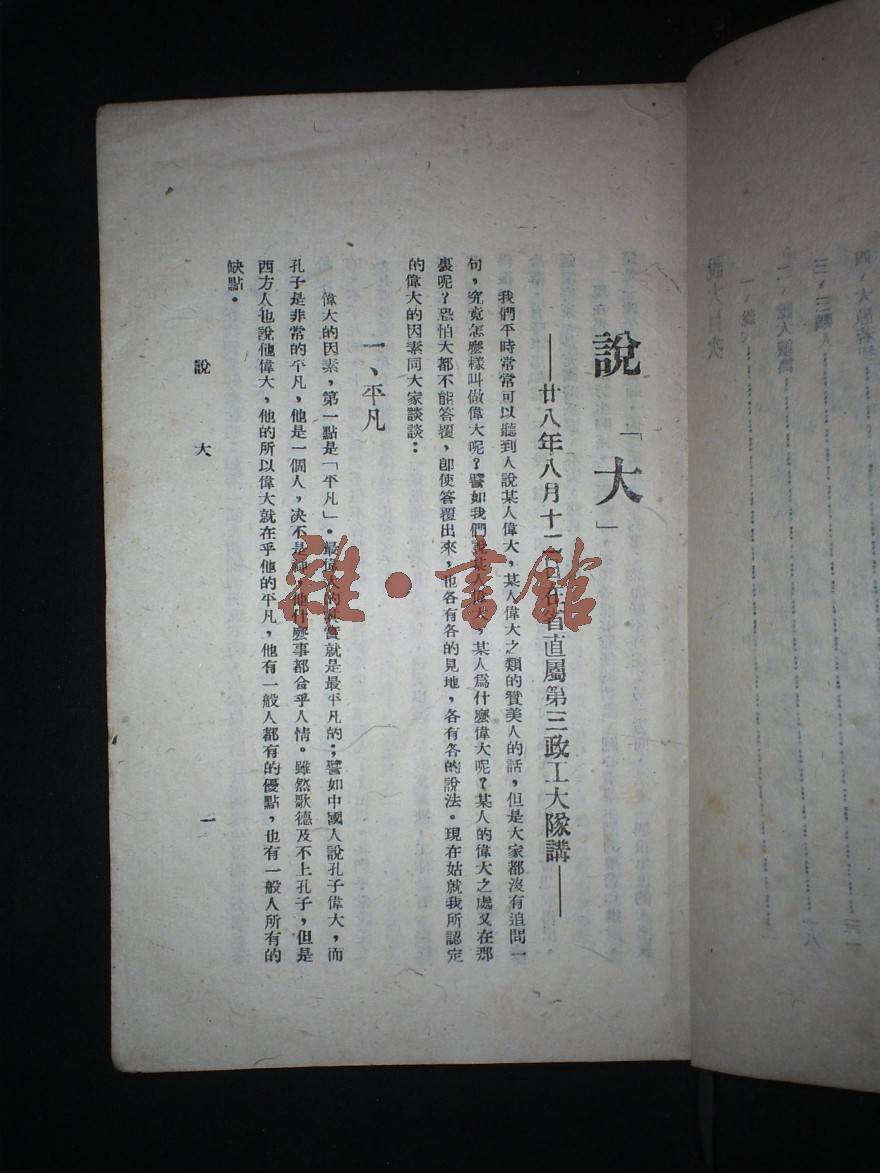 說「大」
——廿八年八月十二日在省直屬第三政工大隊講——
我們平時常常可以聽到人說某人偉大，某人偉大之類的贊美人的話，但是大家都沒有追問一
句，究竟怎麼樣叫做偉大呢？譬如我們說某人偉大，某人爲什麼偉大呢？某人的偉大之處又在那
裏呢？恐怕大都不能答覆，卽使答覆出來，也各有各的見地，各有各的說法。現在姑就我所認定
的偉大的因素同大家談談：
一、平凡
偉大的因素，第一點是「平凡」。最偉大的其實就是最平凡的；譬如中國人說孔子偉大，而
孔子是非常的平凡，他是一個人，决不是神，他什麼事都合乎人情。雖然歌德及不上孔子，但是
西方人也說他偉大，他的所以偉大就在乎他的平凡，他有一般人都有的優點，也有一般人所有的
缺點。
說 大
一
雜·書館
說大目次
三、三類人